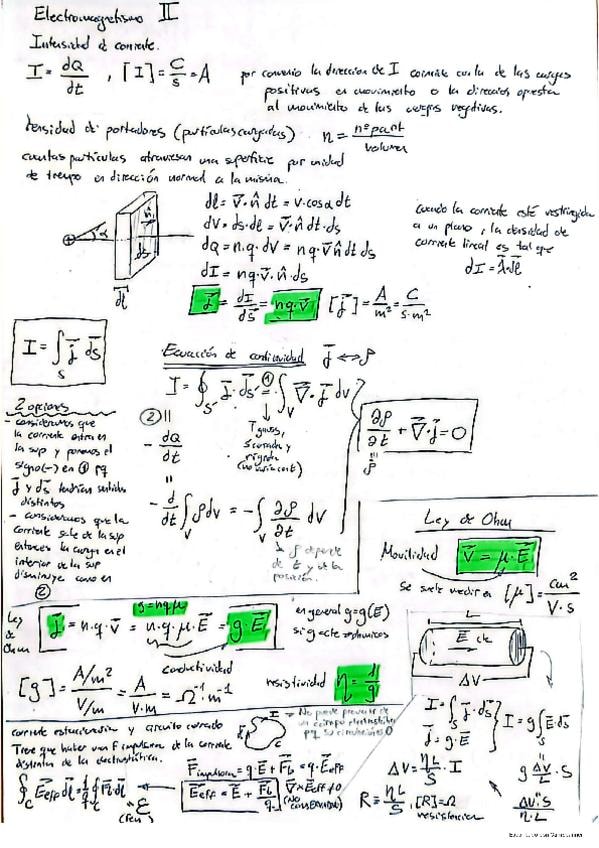 Electromagnetismo II
Intensidad de corriente.
I = dQ/dt , [I] = C/s = A
por convenio la direccion de I coincide con la de las cargas
positivas en movimiento o la direccion opuesta
al movimiento de las cargas negativas.
Densidad de portadores (partículas cargadas) n = nº part/volumen
cuantas partículas atraviesan una superficie por unidad
de tiempo en dirección normal a la misma.
dl = v⃗·n̂ dt = v·cosα dt
dV = ds·dl = v⃗·n̂ dt·ds
dQ = n·q·dV = nq·v⃗ n̂ dt ds
dI = nq·v⃗·n̂·ds
j⃗ = dI/ds⃗ = nq·v⃗ [j⃗] = A/m² = C/s·m²
α
n̂
ds
dl⃗
cuando la corriente esté restringida
a un plano, la densidad de
corriente lineal es tal que
dI = λ⃗·dl⃗
I = ∫_S j⃗ ds⃗
Ecuación de continuidad j⃗ ↔ ρ
I = ∮_S j⃗·ds⃗ =① ∫_V ∇⃗·j⃗ dV
② =
- dQ/dt
T gauss,
= - d/dt ∫_V ρ dV = - ∫_V ∂ρ/∂t dV
ρ depende
de t y de la
posición.
∂ρ/∂t + ∇⃗·j⃗ = 0
2 opciones
- consideramos que
la corriente entra en
la sup y ponemos el
signo(-) en ① pq
j⃗ y ds⃗ tendrían sentidos
distintos
- consideramos que la
corriente sale de la sup
entonces la carga en el
interior de la sup
disminuye como en
②
Ley de Ohm
Movilidad v⃗ = μ·E⃗
Se suele medir en [μ] = cm²/V·s
Ley
de
Ohm
g = nqμ
j⃗ = n·q·v⃗ = n·q·μ·E⃗ = g·E⃗
en general g = g(E)
si g cte óhmicos
conductividad
[g] = (A/m²)/(V/m) = A/V·m = Ω⁻¹·m⁻¹
resistividad η = 1/g
L
E⃗ cte
ΔV
I = ∫_S j⃗·ds⃗
j⃗ = g·E⃗
I = g∫_S E⃗ ds
g ΔV/L · S
ΔV·S/η·L
ΔV = ηL/S · I
R = ηL/S, [R] = Ω
resistencia
corriente estacionaria y circuito cerrado
Tiene que haber una F impulsora de la corriente
distinta de la electrostática.
I
- No puede provenir de
un campo electrostático
pq su circulación es 0
F⃗impulsora = q·E⃗ + F⃗b = q·E⃗eff
E⃗eff = E⃗ + F⃗b/q
∇⃗×E⃗eff ≠ 0
(No conservativo)
∮_C E⃗eff dl⃗ = 1/q ∮ F⃗b·dl⃗ = ε
(fem)